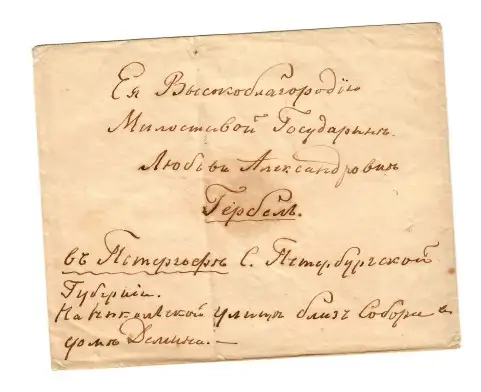 Ея Высокоблагородію
Милостивой Государынѣ
Любовь Александровнѣ
Гербель.
въ Петергофѣ С. Петербургской
Губерніи.
улицѣ близъ Собора
домѣ Демина. —